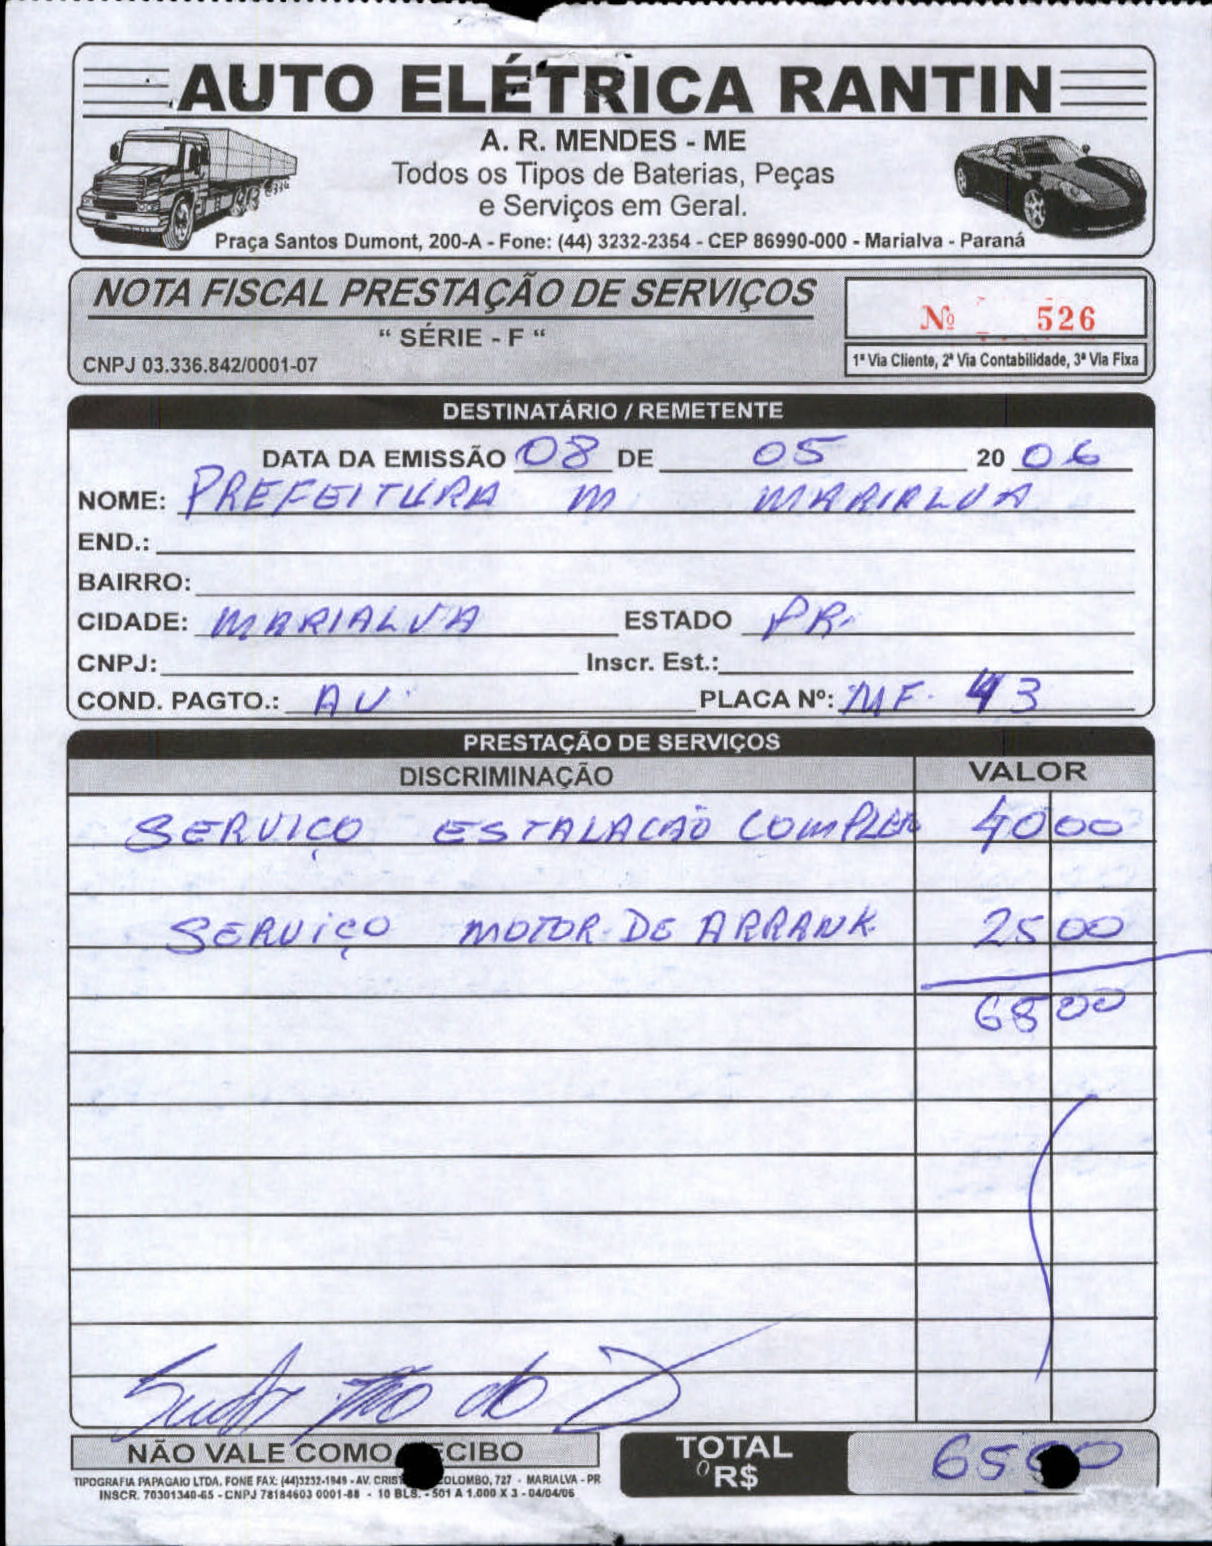 AUTO ELÉTRICA RANTIN
A. R. MENDES - ME
Todos os Tipos de Baterias, Peças
e Serviços em Geral.
Praça Santos Dumont, 200-A - Fone: (44) 3232-2354 - CEP 86990-000 - Marialva - Paraná
NOTA FISCAL PRESTAÇÃO DE SERVIÇOS
Nº 526
“ SÉRIE - F “
CNPJ 03.336.842/0001-07
1ª Via Cliente, 2ª Via Contabilidade, 3ª Via Fixa
DESTINATÁRIO / REMETENTE
DATA DA EMISSÃO 08 DE 05 20 06
NOME: PREFEITURA M. MARIALVA
END.:
BAIRRO:
CIDADE: MARIALVA ESTADO PR.
CNPJ: Inscr. Est.:
COND. PAGTO.: AV PLACA Nº: MF. 43
PRESTAÇÃO DE SERVIÇOS
DISCRIMINAÇÃO VALOR
SERVIÇO ESTALACÃO 40 00
SERVIÇO MOTOR DE ARRANK 25 00
65 00
NÃO VALE COMO RECIBO
TOTAL R$
TIPOGRAFIA PAPAGAIO LTDA. FONE FAX: (44)3232-1949 - AV. COLOMBO, 727 - MARIALVA - PR
INSCR. 70301340-65 - CNPJ 78184603 0001-88 - 10 BLS. - 501 A 1.000 X 3 - 04/04/06